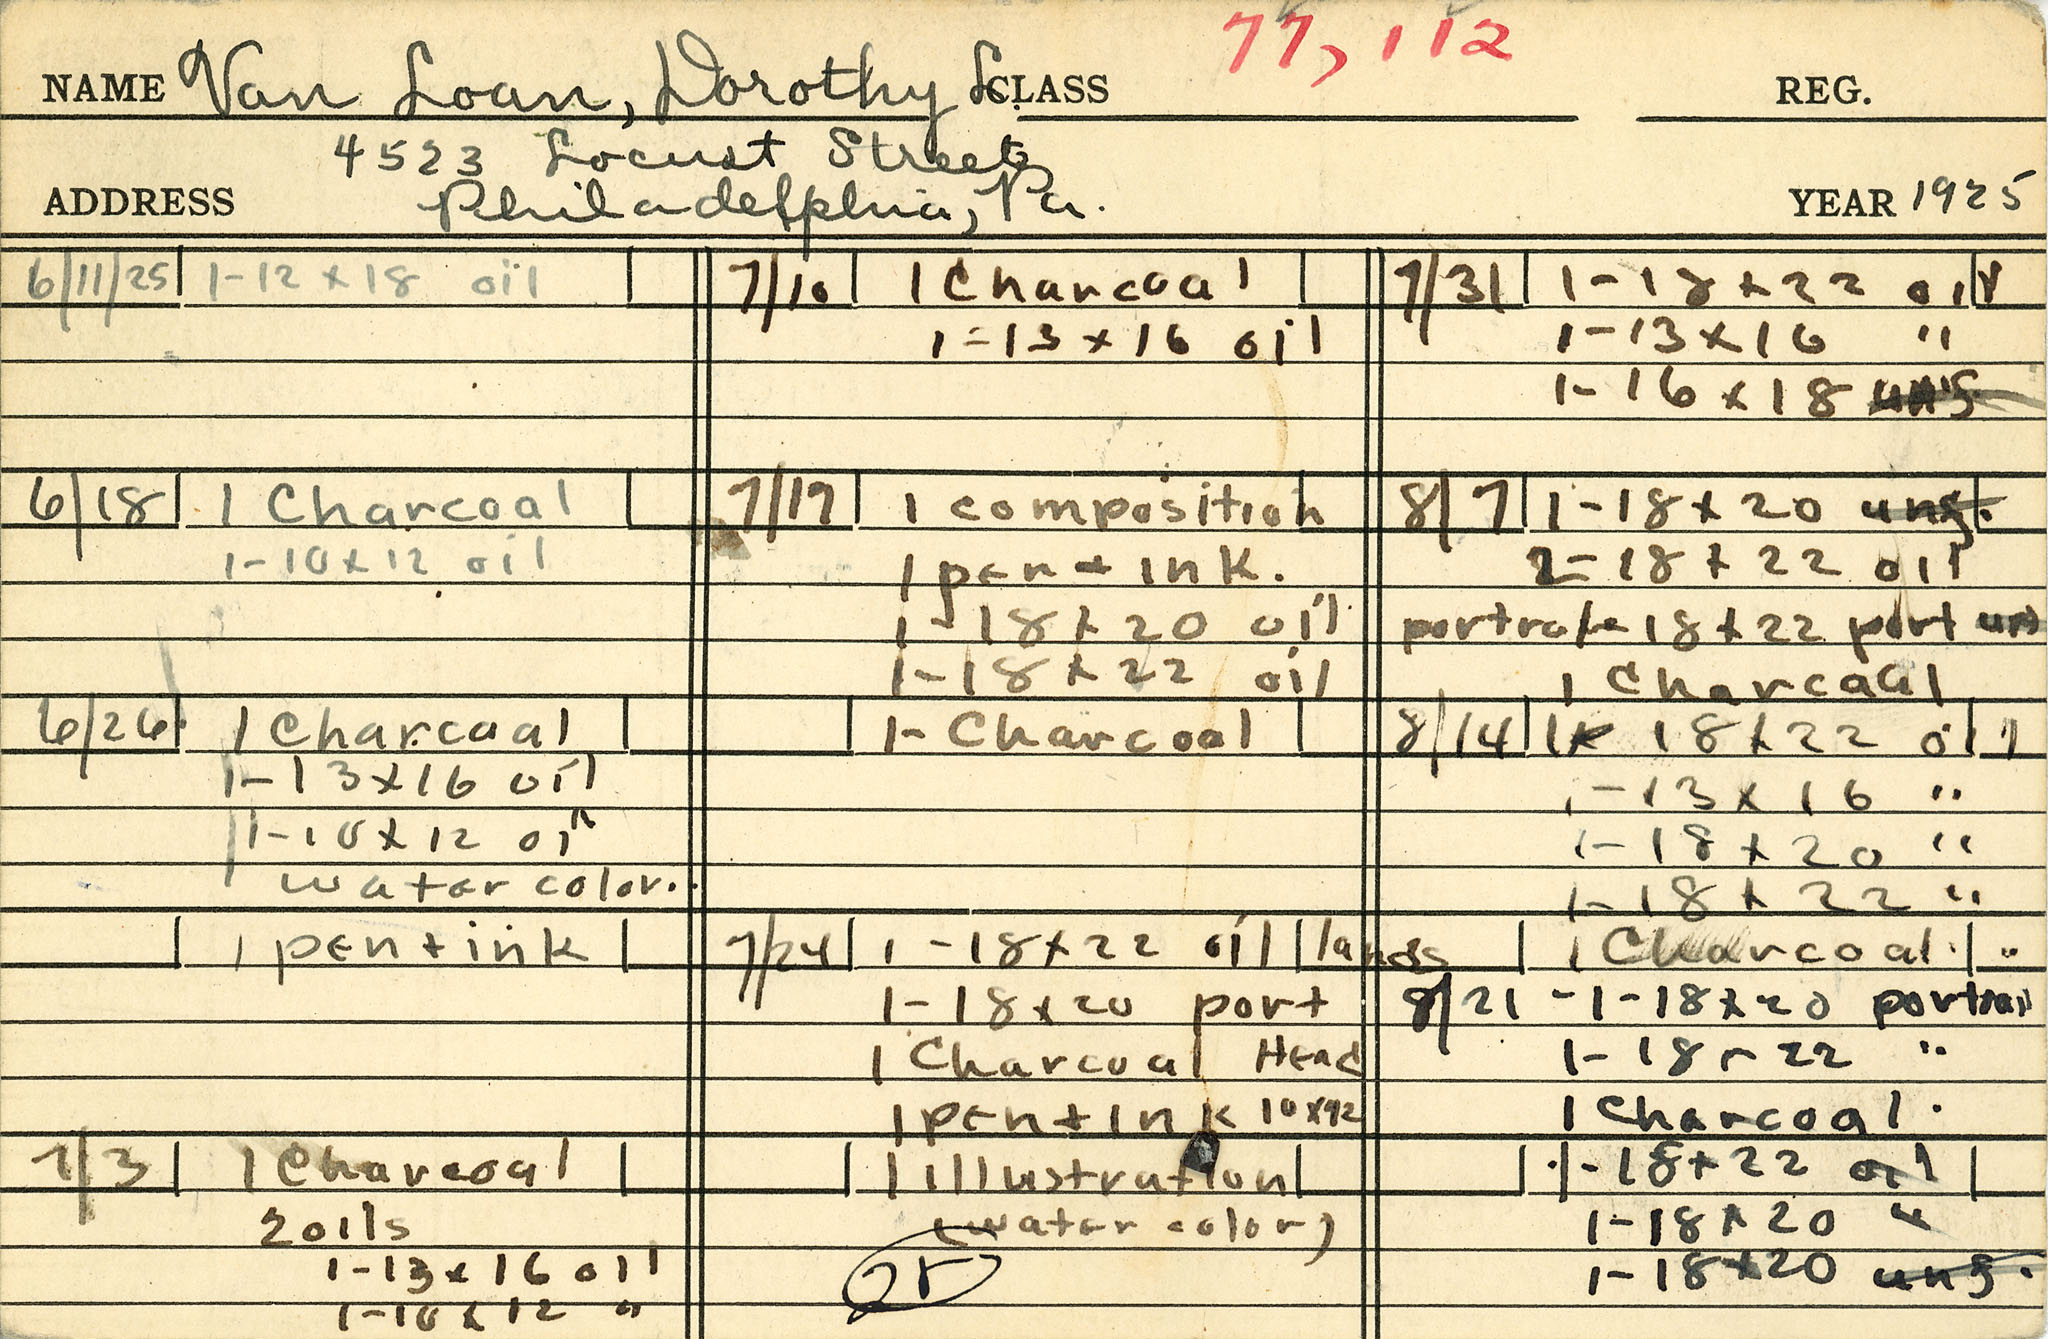 77, 112
NAME Van Loan, Dorothy L. CLASS REG.
4523 Locust Street
ADDRESS Philadelphia, Pa. YEAR 1925
6/11/25 1-12 x 18 oil
6/18 1 Charcoal
1-10x12 oil
6/26 1 Charcoal
1-13x16 oil
1-10x12 oil
water color.
1 pen + ink
7/3 1 Charcoal
2 oils
1-13x16 oil
1-10x12 "
7/10 1 Charcoal
1-13x16 oil
7/17 1 composition
1 pen + ink.
1-18x20 oil
1-18x22 oil
1- Charcoal
7/24 1-18x22 oil lands
1-18x20 port
1 Charcoal Head
1 pen + ink
1 illustration
(water color)
25
7/31 1-18x22 oil
1-13x16 "
1-16x18 unf
8/7 1-18x20 unf.
2-18x22 oil
18x22 port unf
1 Charcoal
8/14 18x22 oil
1-13x16 "
1-18x20 "
1-18x22 "
1 Charcoal. "
8/21 -1-18x20 portrait
1-18x22 "
1 Charcoal.
1-18x22 oil
1-18x20 "
1-18x20 unf.